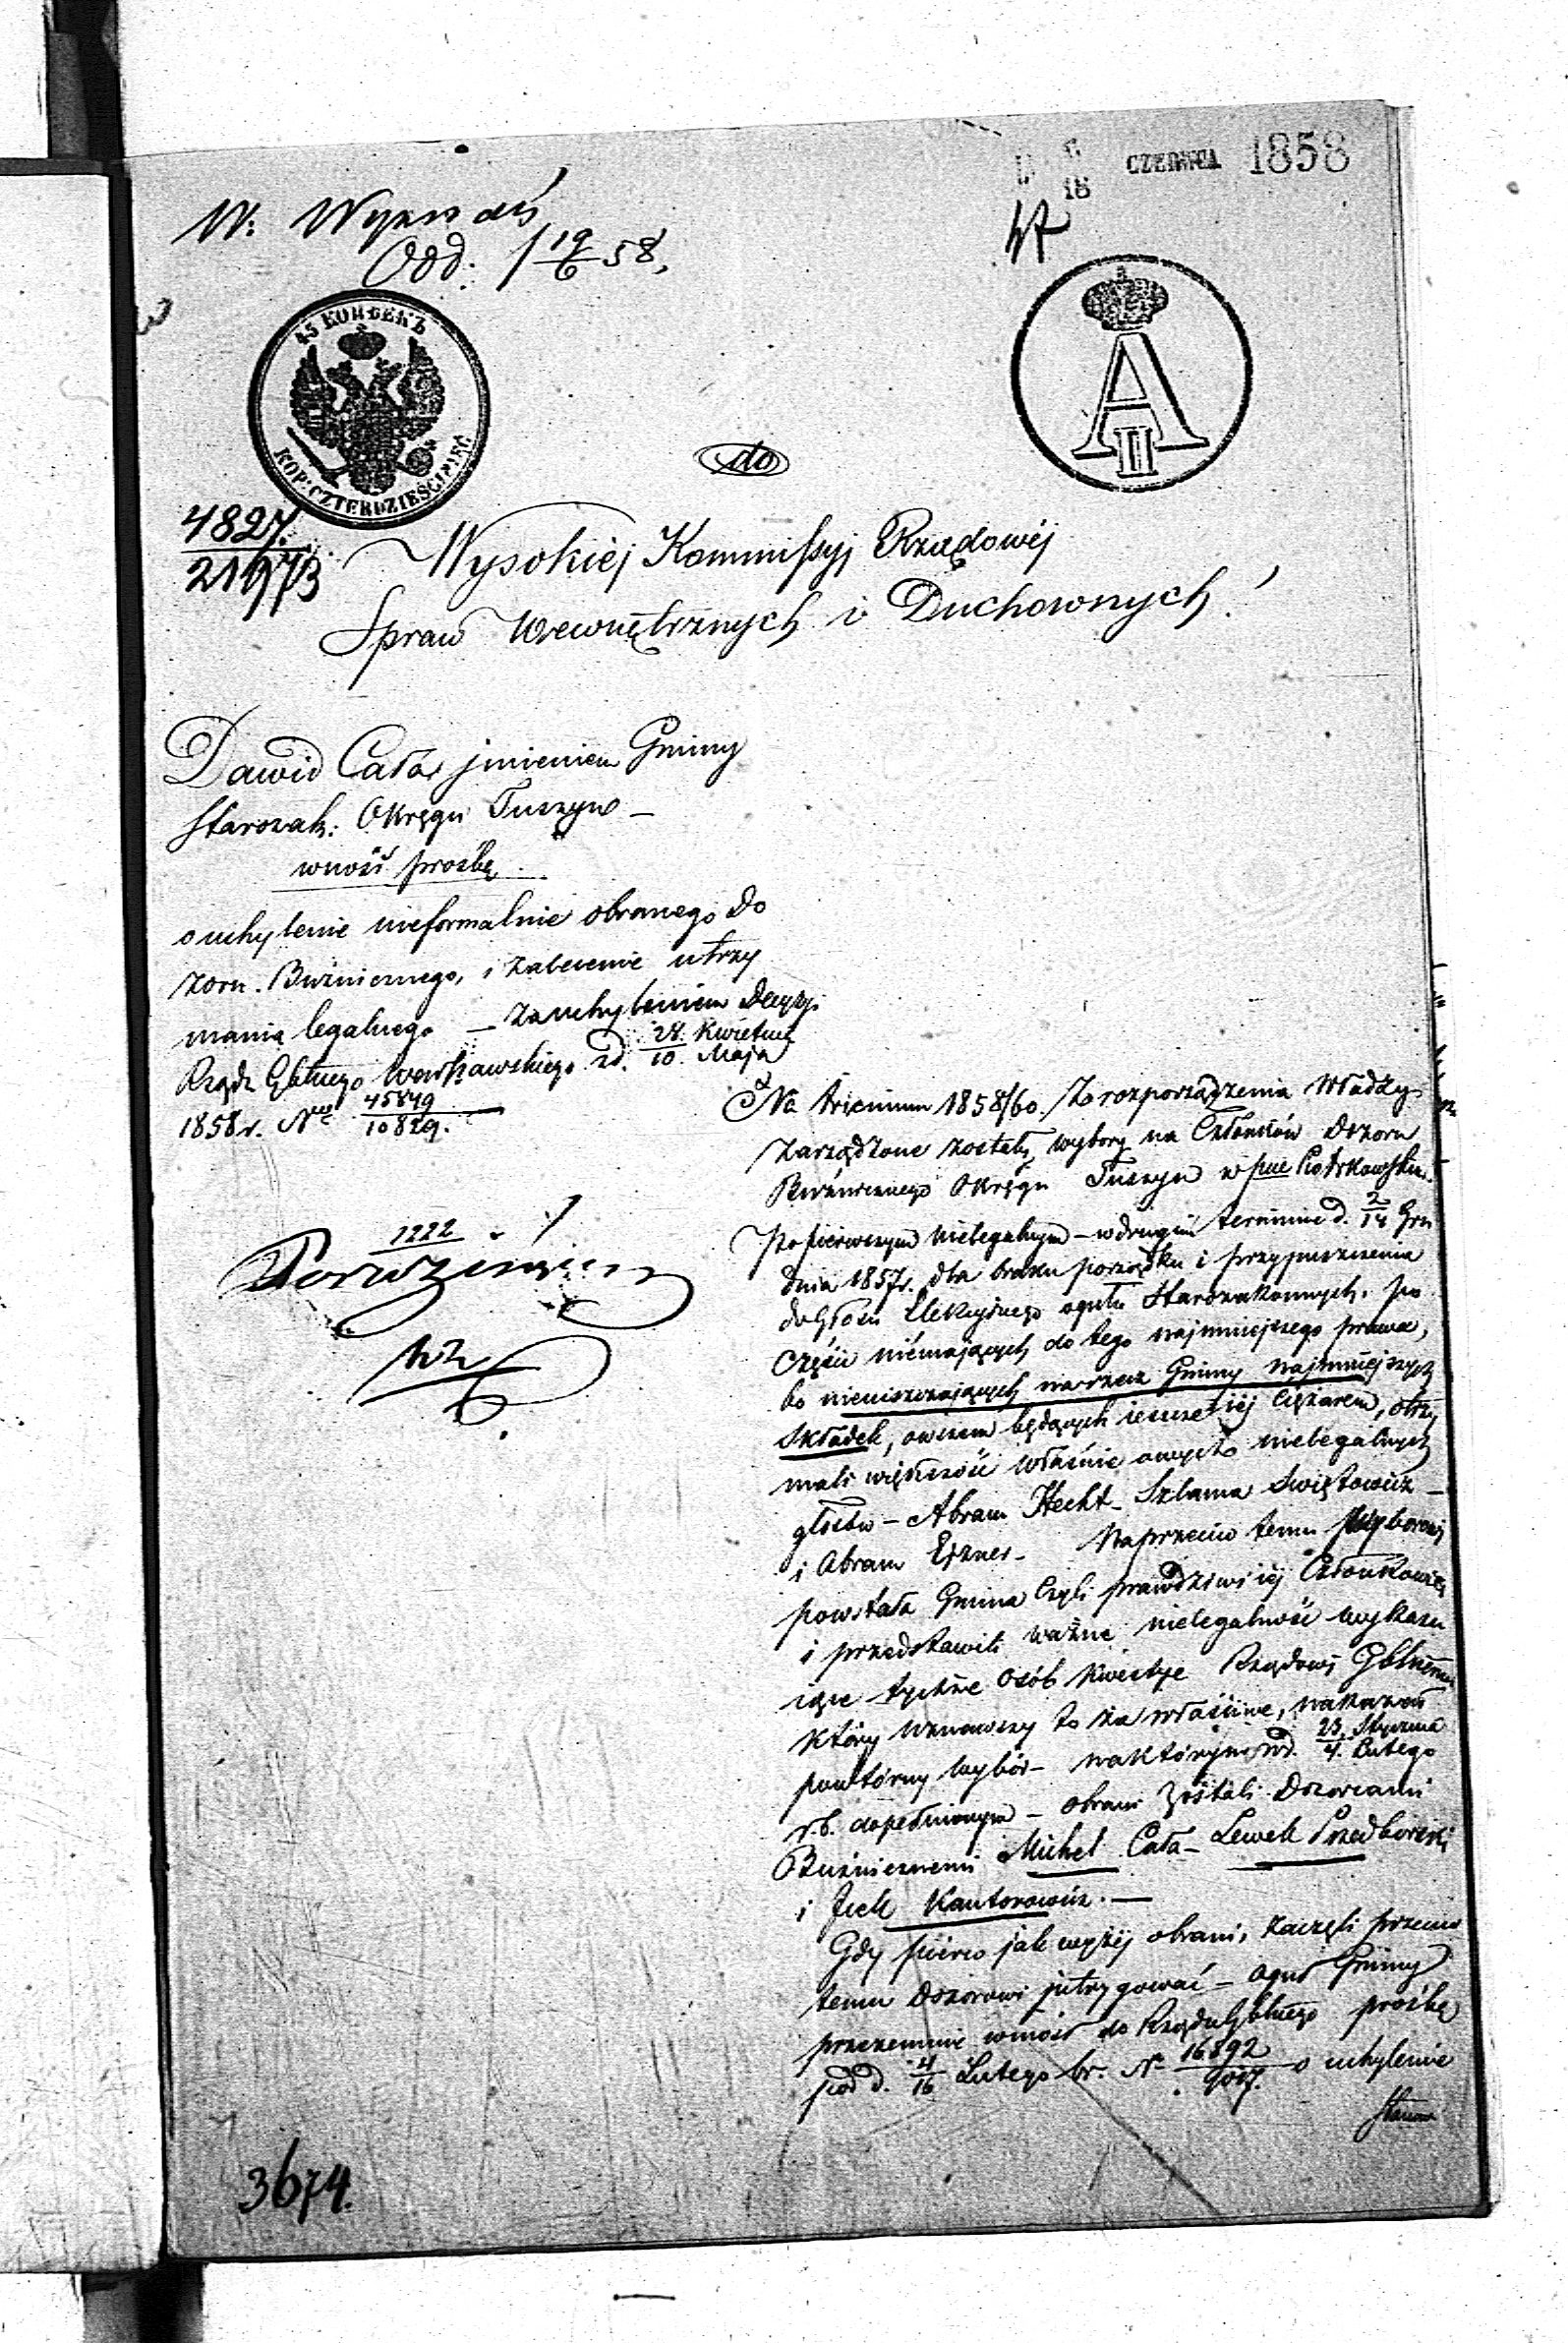 6
18 CZERWCA 1858
W: Wyznań
Odd: / 19/6 58.
45 КОПѢЕКЪ
KOP: CZTERDZIEŚCI PIĘĆ
A II
do
4827.
21973
Wysokiej Kommissyj Rządowéj
Spraw Wewnętrznych i Duchownych!
Dawid Cała jmieniem Gminy
Starozak: Okręgu Tuszyn –
wnosi prośbę
o uchylenie nieformalnie obranego Do
zoru Bużnicznego, i zalecenie utrzy
mania legalnego – za uchyleniem Decyzyi
Rządu Gbłnego Warszawskiego z d. 28 Kwietnia / 10 Maja
1858 r. No 45849 / 10829.
Na tricinium 1858/60. Z rozporządzenia Władzy
zarządzone zostały wybory na Członków Dozoru
Bużnicznego Okręgu Tuszyn w pcie Piotrkowskim.
Po pierwszym nielegalnym – w drugim terminie d. 2/14 Gru
dnia 1857 r. dla braku porządku i przypuszczenia
do głosu Elekcyjnego ogółu Starozakonnych, po
części niemających do tego najmniejszego prawa,
bo nieuiszczających na rzecz Gminy najmniejszych
Składek, owszem będących jeszcze jéj ciężarem, otrzy
mali większość właśnie owych nielegalnych
głosów – Abram Hecht – Szlama Swiętowicz –
i Abram Ejzner – Naprzeciw temu Wyborowi
powstała Gmina czyli prawdziwi jéj Członkowie
i przedstawili ważne nielegalność wykazu
jące tychże Osób kwestye Rządowi Gblnemu
który uznawszy to za właściwe, nakazał
powtórny wybór – na którym w d. 23 Stycznia / 4 Lutego
r. b. dopełnionym – obrani zostali Dozorcami
Bużnicznemi Michel Cała – Lewek Przedborski
i Icek Kantorowicz. –
Gdy piérw jak wyżéj obrani, zaczęli przeciw
temu Dozorowi jntrygować – ogół Gminy
przezemnie wniósł do Rządu Gblnego prośbę
pod d. 4/16 Lutego br. No 16892 / 9017. o uchylenie
1222
3674.